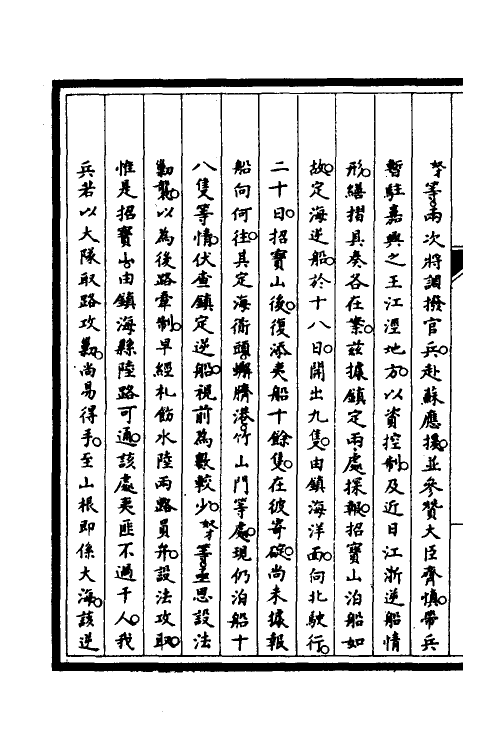 奴才等兩次將調撥官兵赴蘇應援並參贊大臣齊慎帶兵
暫駐嘉興之王江涇地方以資控制及近日江浙逆船情
形繕摺具奏各在案茲據鎮定兩處探報招寶山泊船如
故定海逆船於十八日開出九隻由鎮海洋面向北駛行
二十日招寶山後復添夷船十餘隻在彼寄碇尚未據報
船向何往其定海衜頭蠏臍港竹山門等處現仍泊船十
八隻等情伏查鎮定逆船視前為數較少奴才等亟思設法
勦襲以為後路牽制早經札飭水陸兩路員弁設法攻取
惟是招寶山由鎮海縣陸路可通該處夷匪不過千人我
兵若以大隊取路攻勦尚易得手至山根即係大海該逆